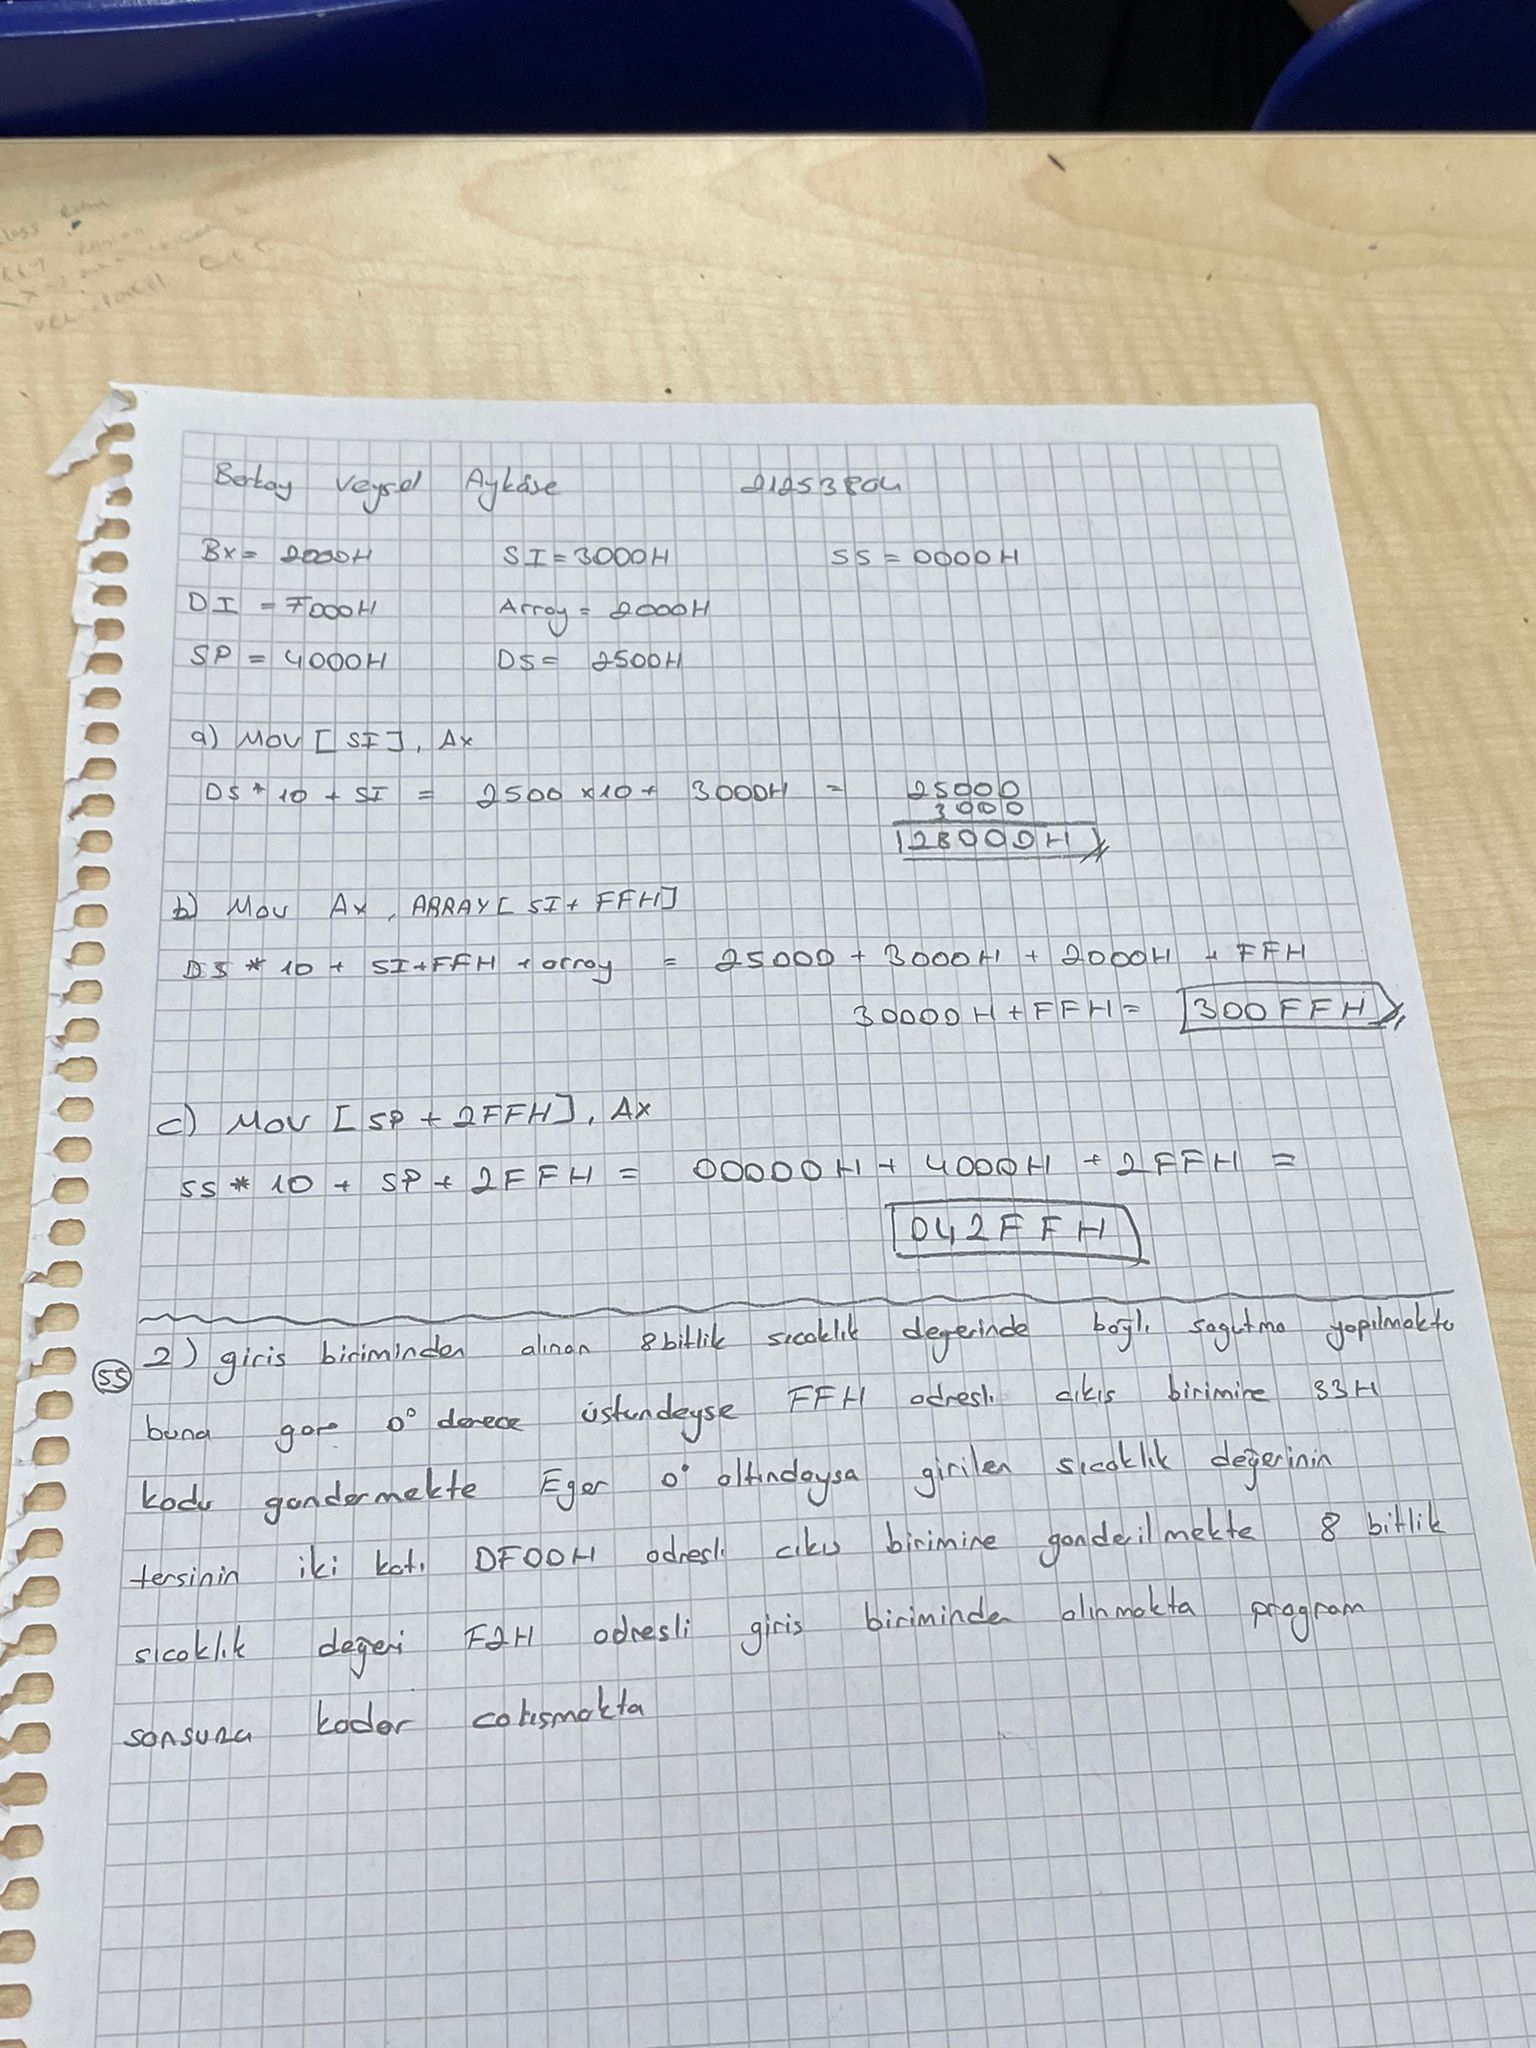 Berkay Veysel Aykâse 21253804
Bx = 2000H SI = 3000H SS = 0000H
DI = 7000H Array = 2000H
SP = 4000H DS = 2500H
a) Mov [SI], Ax
DS * 10 + SI = 2500 x 10 + 3000H = 25000
3000
28000H
b) Mov Ax, ARRAY[ SI + FFH]
DS * 10 + SI + FFH + array = 25000 + 3000H + 2000H + FFH
30000H + FFH = 300FFH
c) Mov [SP + 2FFH], Ax
SS * 10 + SP + 2FFH = 00000H + 4000H + 2FFH =
042FFH
2) giris biriminden alınan 8 bitlik sıcaklık degerinde bağlı sogutma yapılmakta
55
buna gore 0° derece üstundeyse FFH adresli cıkıs birimine 33H
kodu gondermekte Eger 0° altındaysa girilen sıcaklık değerinin
tersinin iki katı DF00H adresli cıkıs birimine gonderilmekte 8 bitlik
sıcaklık değeri F2H adresli giris biriminden alınmakta program
sonsuza kadar calısmakta